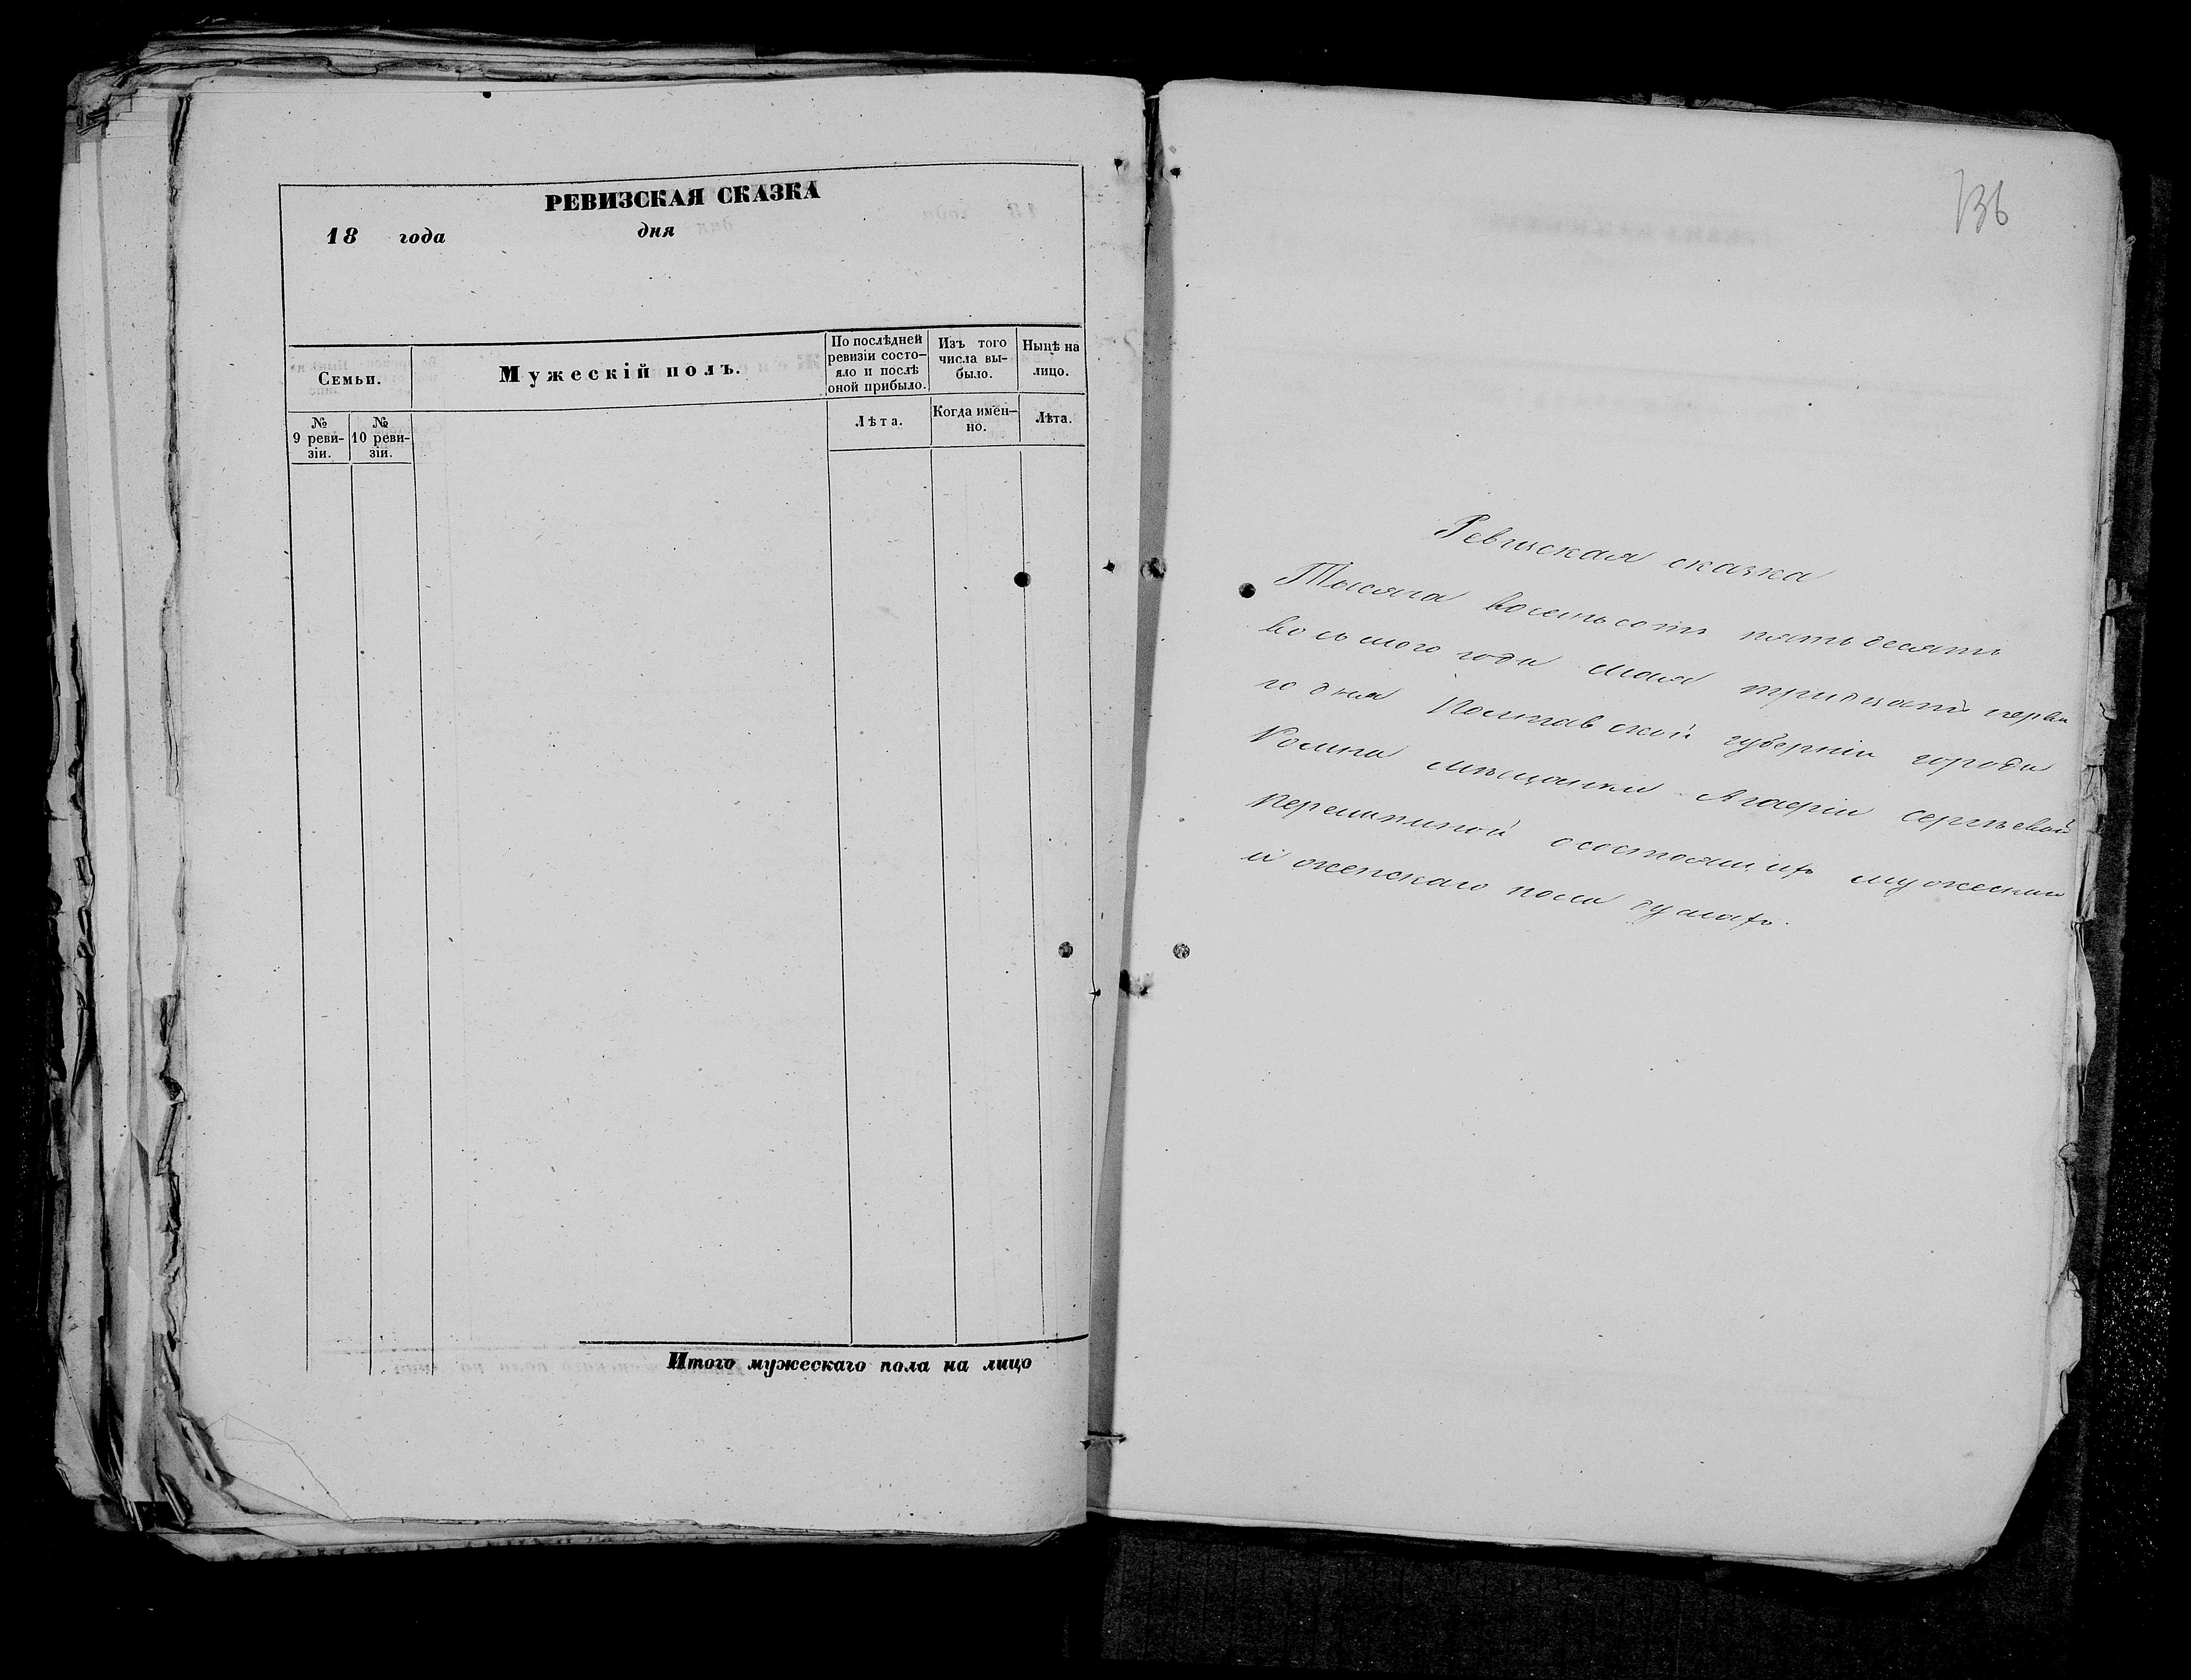 РЕВИЗСКАЯ СКАЗКА
18 года дня
Семьи.
Мужескій полъ.
По послѣдней
ревизіи состо-
яло и послѣ
оной прибыло.
Изъ того
числа вы-
было.
Нынѣ на
лицо.
№
9 реви-
зіи.
№
10 реви-
зіи.
Лѣта.
Когда имен-
но.
Лѣта.
Итого мужескаго пола на лицо
136
Ревизская сказка
Тысяча восемьсотъ пятьдесятъ
восьмого года Мая тридцать перва
го дня Полтавской губерніи города
Ромна мѣщанки Сергѣевой
осостоящихъ мужеска
и женскаго пола душахъ.